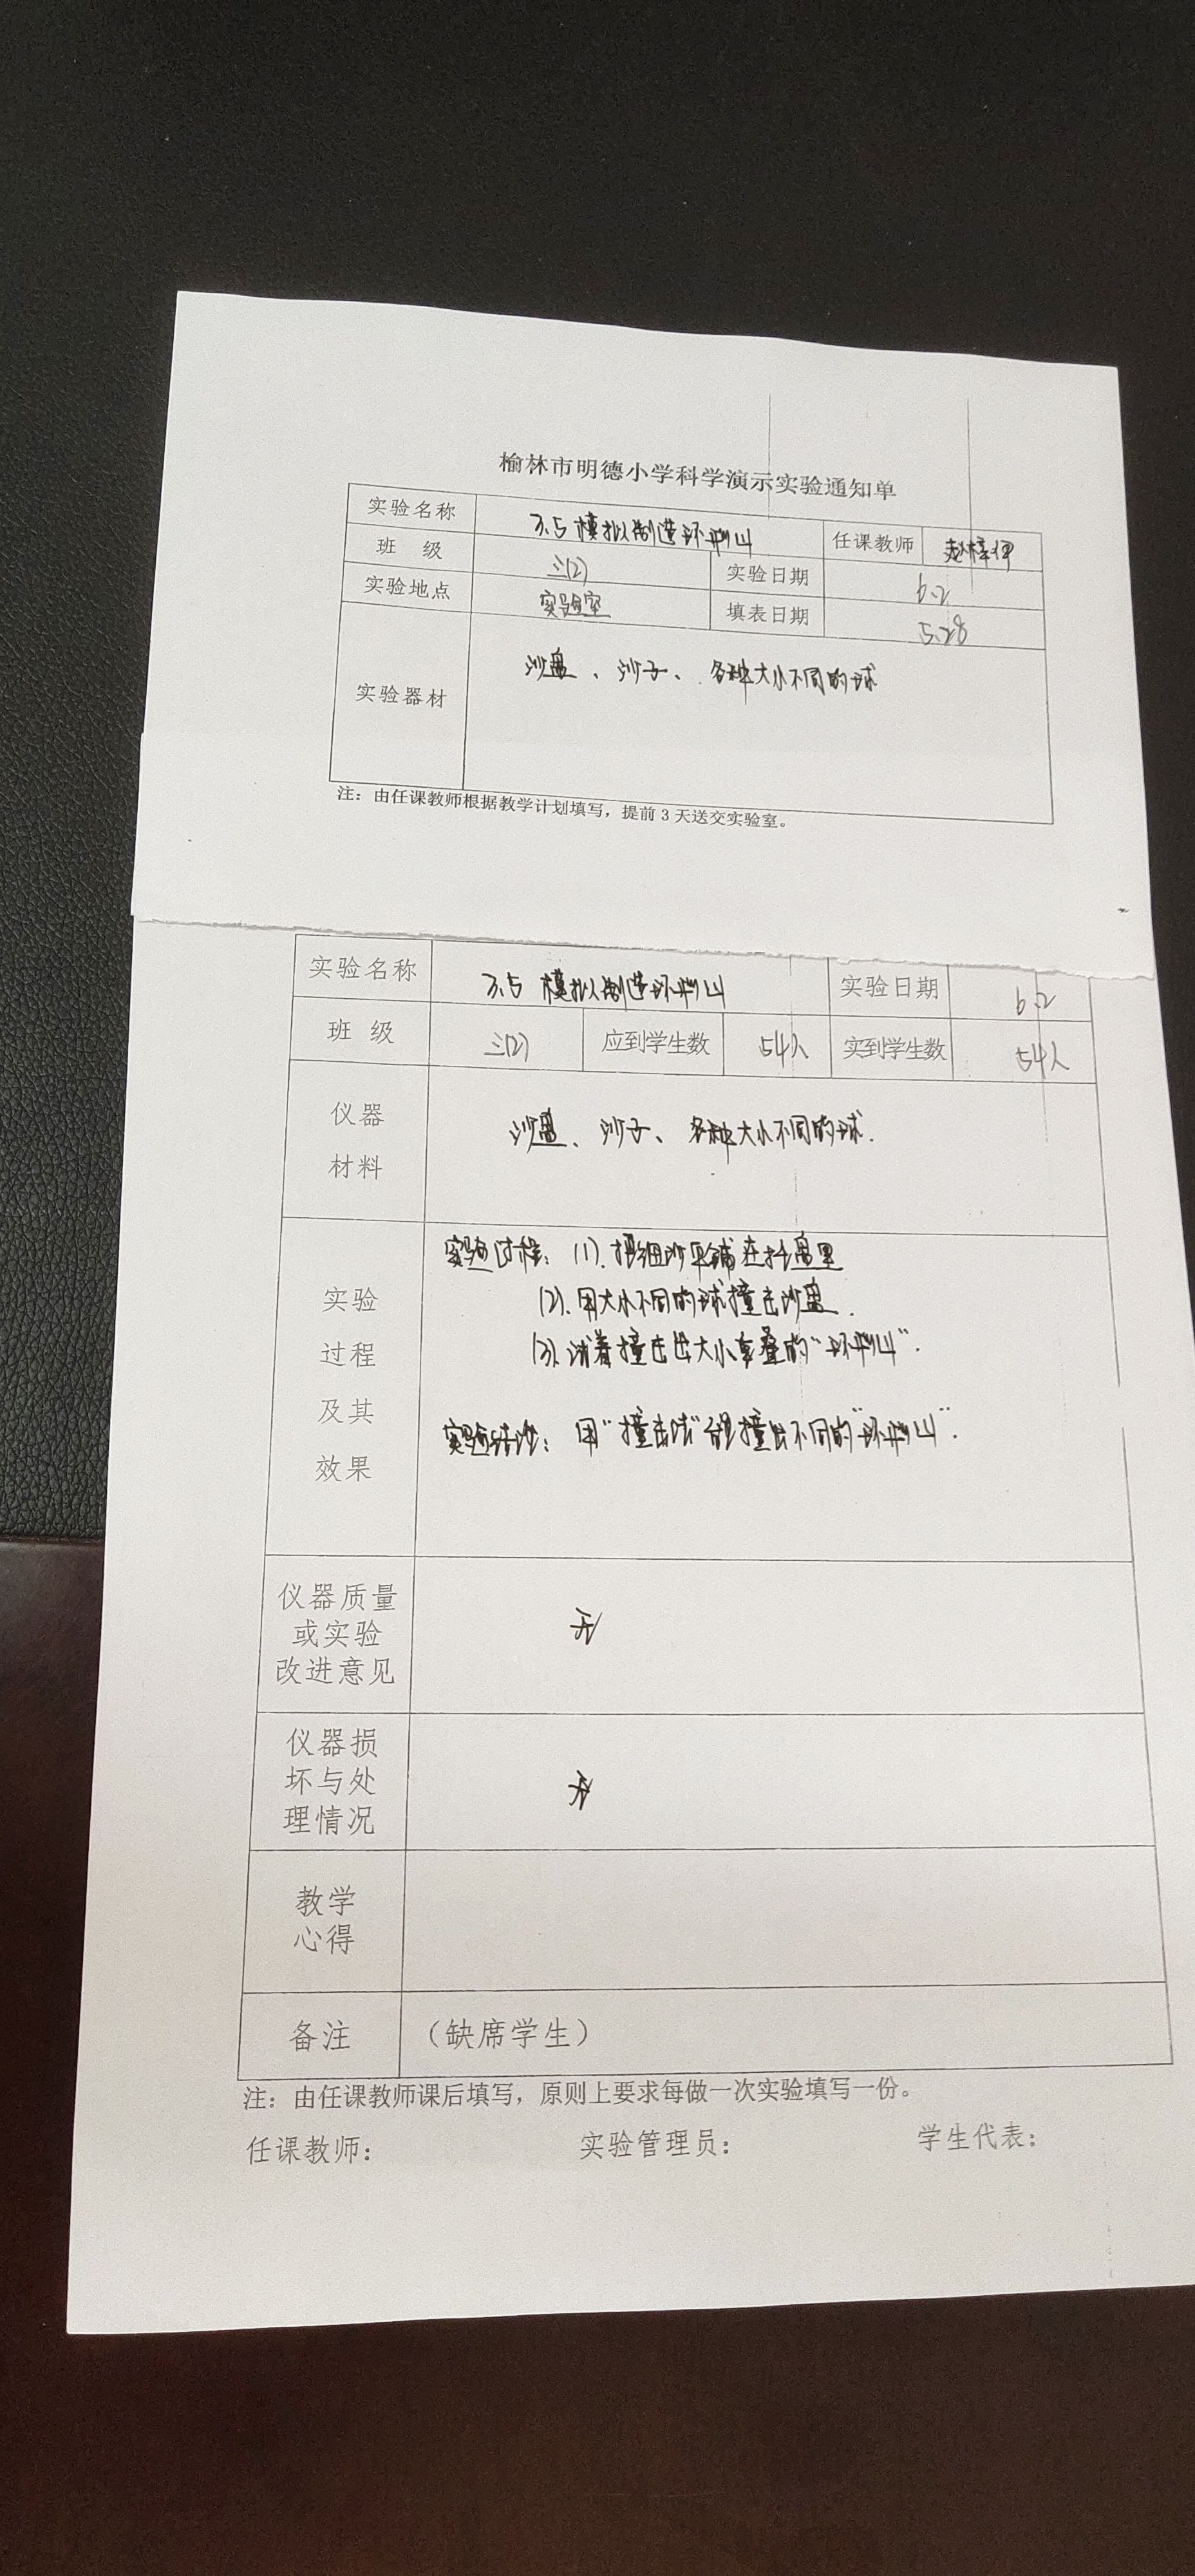 榆林市明德小学科学演示实验通知单
实验名称 3.5 模拟制造环形山 任课教师
班 级 三(2) 实验日期 6.2
实验地点 实验室 填表日期 5.28
实验器材 沙盘、沙子、各种大小不同的球
注：由任课教师根据教学计划填写，提前3天送交实验室。
实验名称 3.5 模拟制造环形山 实验日期 6.2
班 级 三(2) 应到学生数 54人 实到学生数 54人
仪器
材料
沙盘、沙子、各种大小不同的球.
实验
过程
及其
效果
实验过程：(1).把细沙平铺在托盘里
(2).用大小不同的球撞击沙盘.
(3).试着撞击出大小重叠的“环形山”.
实验结论：用“撞击法”能撞出不同的“环形山”.
仪器质量
或实验
改进意见
无
仪器损
坏与处
理情况
无
教学
心得
备注 （缺席学生）
注：由任课教师课后填写，原则上要求每做一次实验填写一份。
任课教师： 实验管理员： 学生代表：